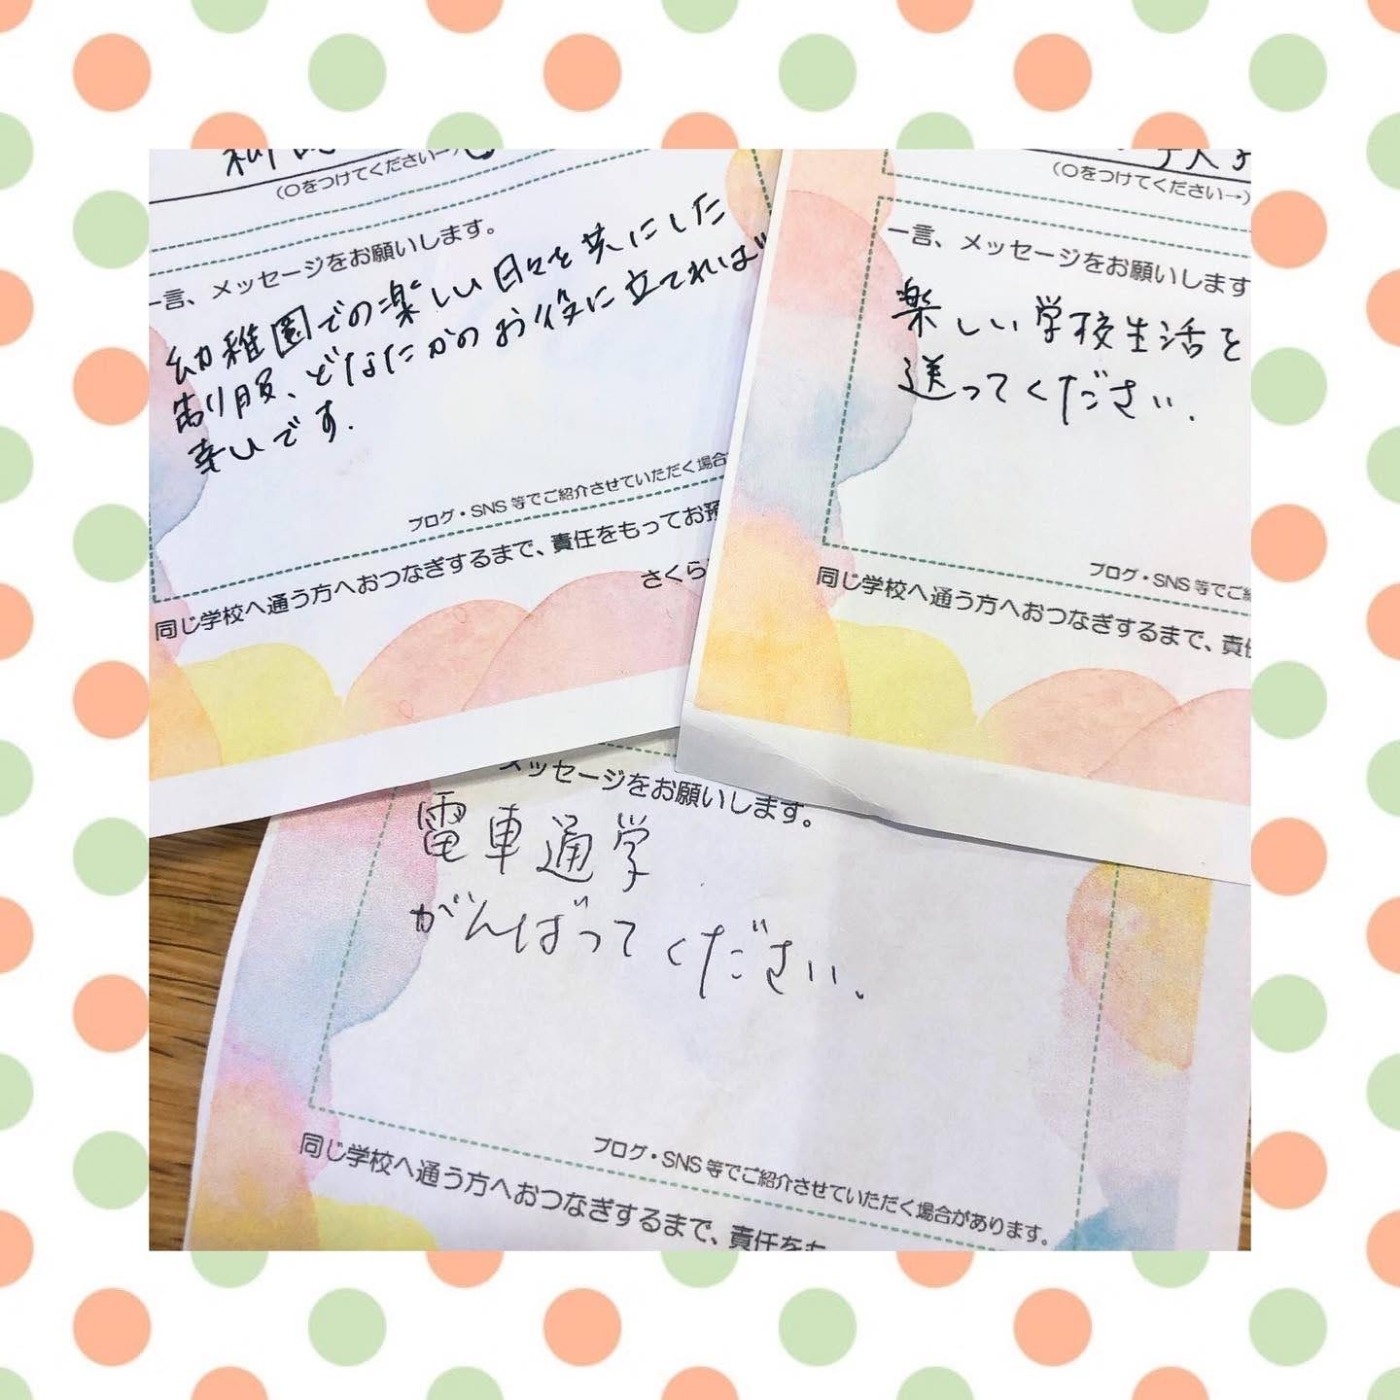 (○をつけてください→)
一言、メッセージをお願いします。
幼稚園での楽しい日々を共にした
制服、どなたかのお役に立てれば
幸いです.
ブログ・SNS等でご紹介させていただく場合
同じ学校へ通う方へおつなぎするまで、責任をもってお預
さくら
(○をつけてください→)
一言、メッセージをお願いします
楽しい学校生活を
送ってください.
ブログ・SNS等でご紹
同じ学校へ通う方へおつなぎするまで、責任
メッセージをお願いします。
電車通学
がんばってください.
ブログ・SNS等でご紹介させていただく場合があります。
同じ学校へ通う方へおつなぎするまで、責任をも